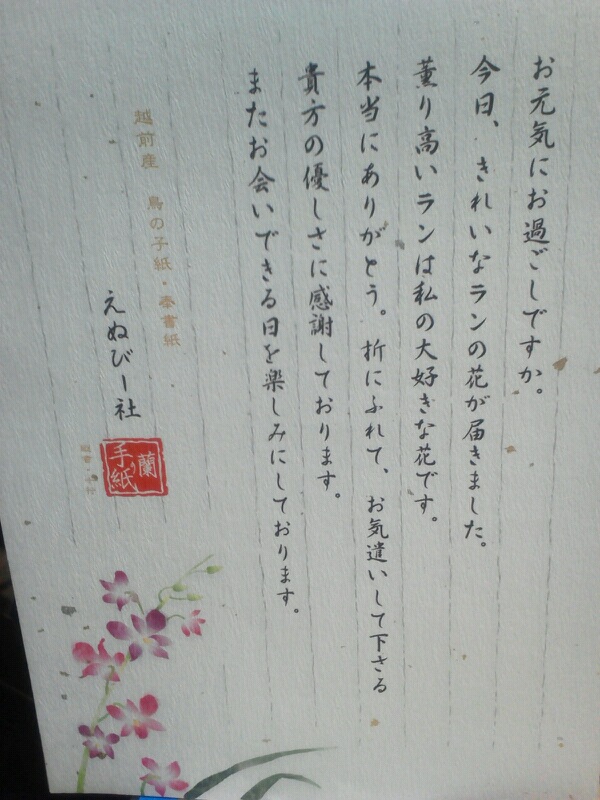 お元気にお過ごしですか。
今日、きれいなランの花が届きました。
薫り高いランは私の大好きな花です。
本当にありがとう。折にふれて、お気遣いして下さる
貴方の優しさに感謝しております。
またお会いできる日を楽しみにしております。
越前産 鳥の子紙・奉書紙
えぬびー社
蘭手紙